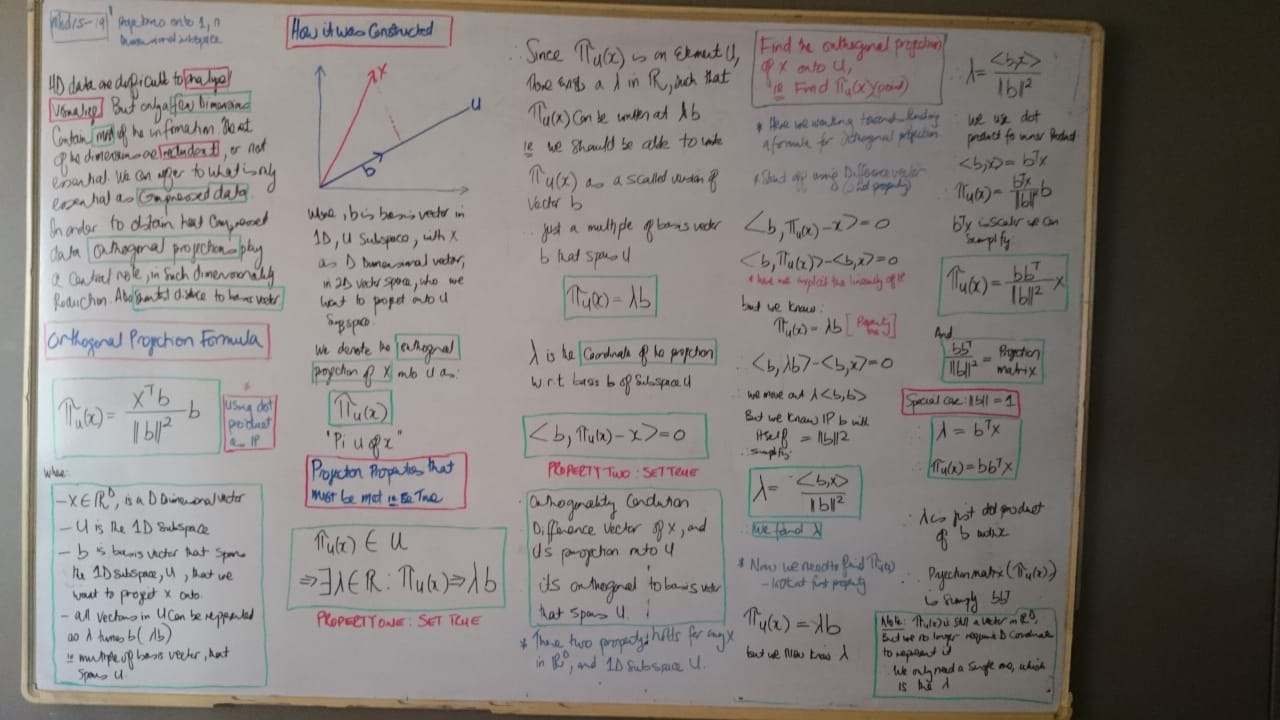 Projections onto 1, n
Dimensional subspace
HD data are difficult to analyse,
Visualise. But only a few Dimensions
Contain most of the information. The rest
of the dimensions are redundant, or not
essential. We can refer to what is only
essential as Compressed data.
In order to obtain that Compressed
data orthogonal projections play
a central role, in such dimensionality
Reduction. Also shortest distance to basis vector
Orthogonal Projection Formula
πu(x) = xᵀb / ||b||² b
Using dot
product
as IP
where:
- x ∈ ℝᴰ, is a D Dimensional vector
- U is the 1D Subspace
- b is basis vector that spans
the 1D subspace, U, that we
want to project x onto.
- all vectors in U can be represented
as λ times b (λb)
ie multiple of basis vector, that
spans U.
How it was Constructed
x
U
b
where, b is basis vector in
1D, U Subspace, with x
as D Dimensional vector,
in 2D vector space, who we
want to project onto U
Subspace.
We denote the orthogonal
projection of x onto U as:
πu(x)
"Pi u of x"
Projection Properties that
must be met ie Be True
πu(x) ∈ U
⇒ ∃λ ∈ ℝ : πu(x) ⇒ λb
PROPERTY ONE: SET TRUE
Since πu(x) is an Element U,
there exists a λ in ℝ, such that
πu(x) can be written as λb
ie we should be able to write
πu(x) as a scaled version of
vector b
just a multiple of basis vector
b that spans U
πu(x) = λb
λ is the Coordinate of the projection
w.r.t. basis b of Subspace U
<b, πu(x) - x> = 0
PROPERTY TWO: SET TRUE
Orthogonality Condition
Difference vector of x, and
its projection onto U
its orthogonal to basis vector
that spans U.
* These two property holds for any x
in ℝᴰ, and 1D subspace U.
Find the orthogonal projection
of x onto U,
ie Find πu(x) (point)
* Here we working towards finding
a formula for orthogonal projection
* Start off using Difference vector
(2nd property)
<b, πu(x) - x> = 0
<b, πu(x)> - <b, x> = 0
* have we exploit the linearity of IP
but we know:
πu(x) = λb [Property One]
<b, λb> - <b, x> = 0
we move out λ<b,b>
But we know IP b with
itself = ||b||²
simplify:
λ = <b,x> / ||b||²
We found λ
* Now we need to find πu(x)
- look at first property
πu(x) = λb
but we now know λ
λ = <b,x> / ||b||²
we use dot
product for inner Product
<b,x> = bᵀx
πu(x) = bᵀx / ||b||² b
bᵀx is scaler we can
simplify:
πu(x) = bbᵀ / ||b||² x
And
bbᵀ / ||b||² = Projection
matrix
Special case: ||b|| = 1
λ = bᵀx
πu(x) = bbᵀx
λ is just dot product
of b
Projection matrix (πu(x))
is simply bbᵀ
Note: πu(x) is still a vector in ℝᴰ,
But we no longer require D Coordinate
to represent it
We only need a single one, which
is the λ